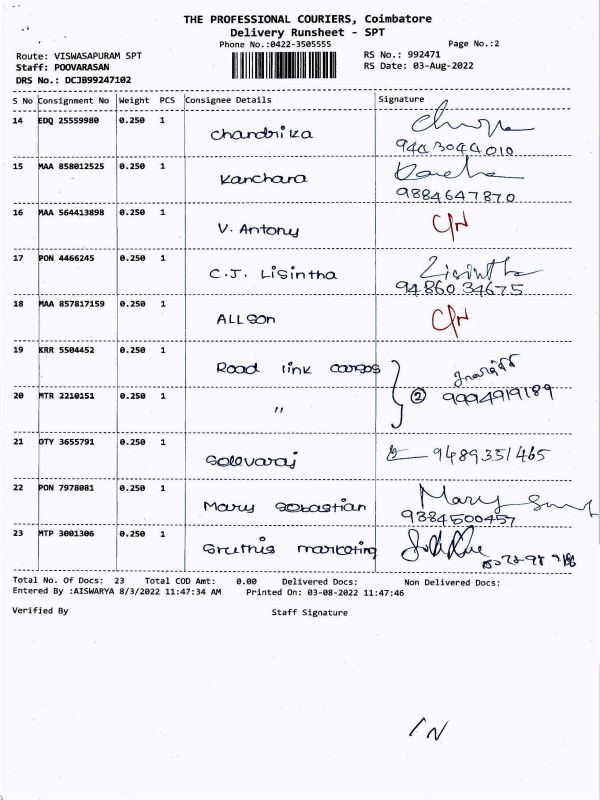 THE PROFESSIONAL COURIERS, Coimbatore
Delivery Runsheet - SPT
Phone No.:0422-3505555 Page No.:2
Route: VISWASAPURAM SPT RS No.: 992471
Staff: POOVARASAN RS Date: 03-Aug-2022
DRS No.: DCJB99247102
S No Consignment No Weight PCS Consignee Details Signature
14 EDQ 25559980 0.250 1 Chandrika
15 MAA 858012525 0.250 1 Kanchana
9884647870
16 MAA 564413898 0.250 1 V. Antony C/N
17 PON 4466245 0.250 1 C.J. Lisintha Lisintha
9486034675
18 MAA 857817159 0.250 1 ALLSon C/N
19 KRR 5504452 0.250 1 Road link cargos
20 MTR 2210151 0.250 1 " ② 9994919189
21 DTY 3655791 0.250 1 Selevaraj 9489351465
22 PON 7978081 0.250 1 Mary Sebastian Mary
9384500457
23 MTP 3001306 0.250 1 Sruthis marketing
Total No. Of Docs: 23 Total COD Amt: 0.00 Delivered Docs: Non Delivered Docs:
Entered By :AISWARYA 8/3/2022 11:47:34 AM Printed On: 03-08-2022 11:47:46
Verified By Staff Signature